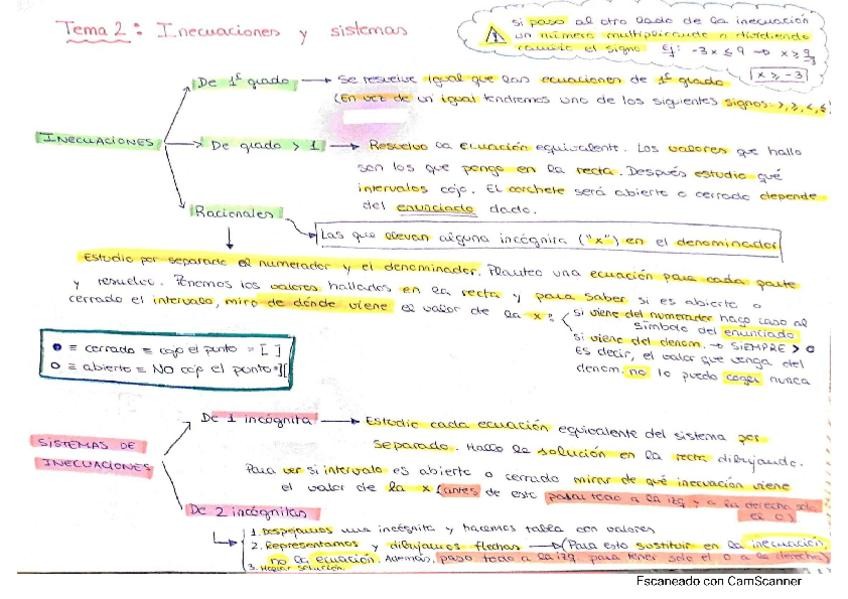 Tema 2: Inecuaciones y sistemas
si paso al otro lado de la inecuación
un número multiplicando o dividiendo
cambio el signo Ej: -3x ≤ 9 → x ≥ 9/-3
x ≥ -3
INECUACIONES
De 1º grado → Se resuelve igual que las ecuaciones de 1º grado
(En vez de un igual tendremos uno de los siguientes signos >, ≥, <, ≤
De grado > 1 → Resuelvo la ecuación equivalente. Los valores que hallo
son los que pongo en la recta. Después estudio qué
intervalos cojo. El corchete será abierto o cerrado depende
del enunciado dado.
Racionales
Las que llevan alguna incógnita ("x") en el denominador
Estudio por separado el numerador y el denominador. Planteo una ecuación para cada parte
y resuelvo. Ponemos los valores hallados en la recta y para saber si es abierto o
cerrado el intervalo, miro de dónde viene el valor de la x:
si viene del numerador hago caso al
símbolo del enunciado
si viene del denom. → SIEMPRE > 0
Es decir, el valor que venga del
denom. no lo puedo coger nunca
● = cerrado = cojo el punto = [ ]
○ = abierto = NO cojo el punto = ][
SISTEMAS DE
INECUACIONES
De 1 incógnita → Estudio cada ecuación equivalente del sistema por
separado. Hallo la solución en la recta dibujando.
Para ver si intervalo es abierto o cerrado mirar de qué inecuación viene
el valor de la x (antes de esto pasar todo a la izq y a la derecha solo
el 0)
De 2 incógnitas
1. Despejamos una incógnita y hacemos tabla con valores
2. Representamos y dibujamos flechas → (Para esto sustituir en la inecuación,
no la ecuación. Además, paso todo a la izq para tener solo el 0 a la derecha)
3. Hallar solución.
Escaneado con CamScanner